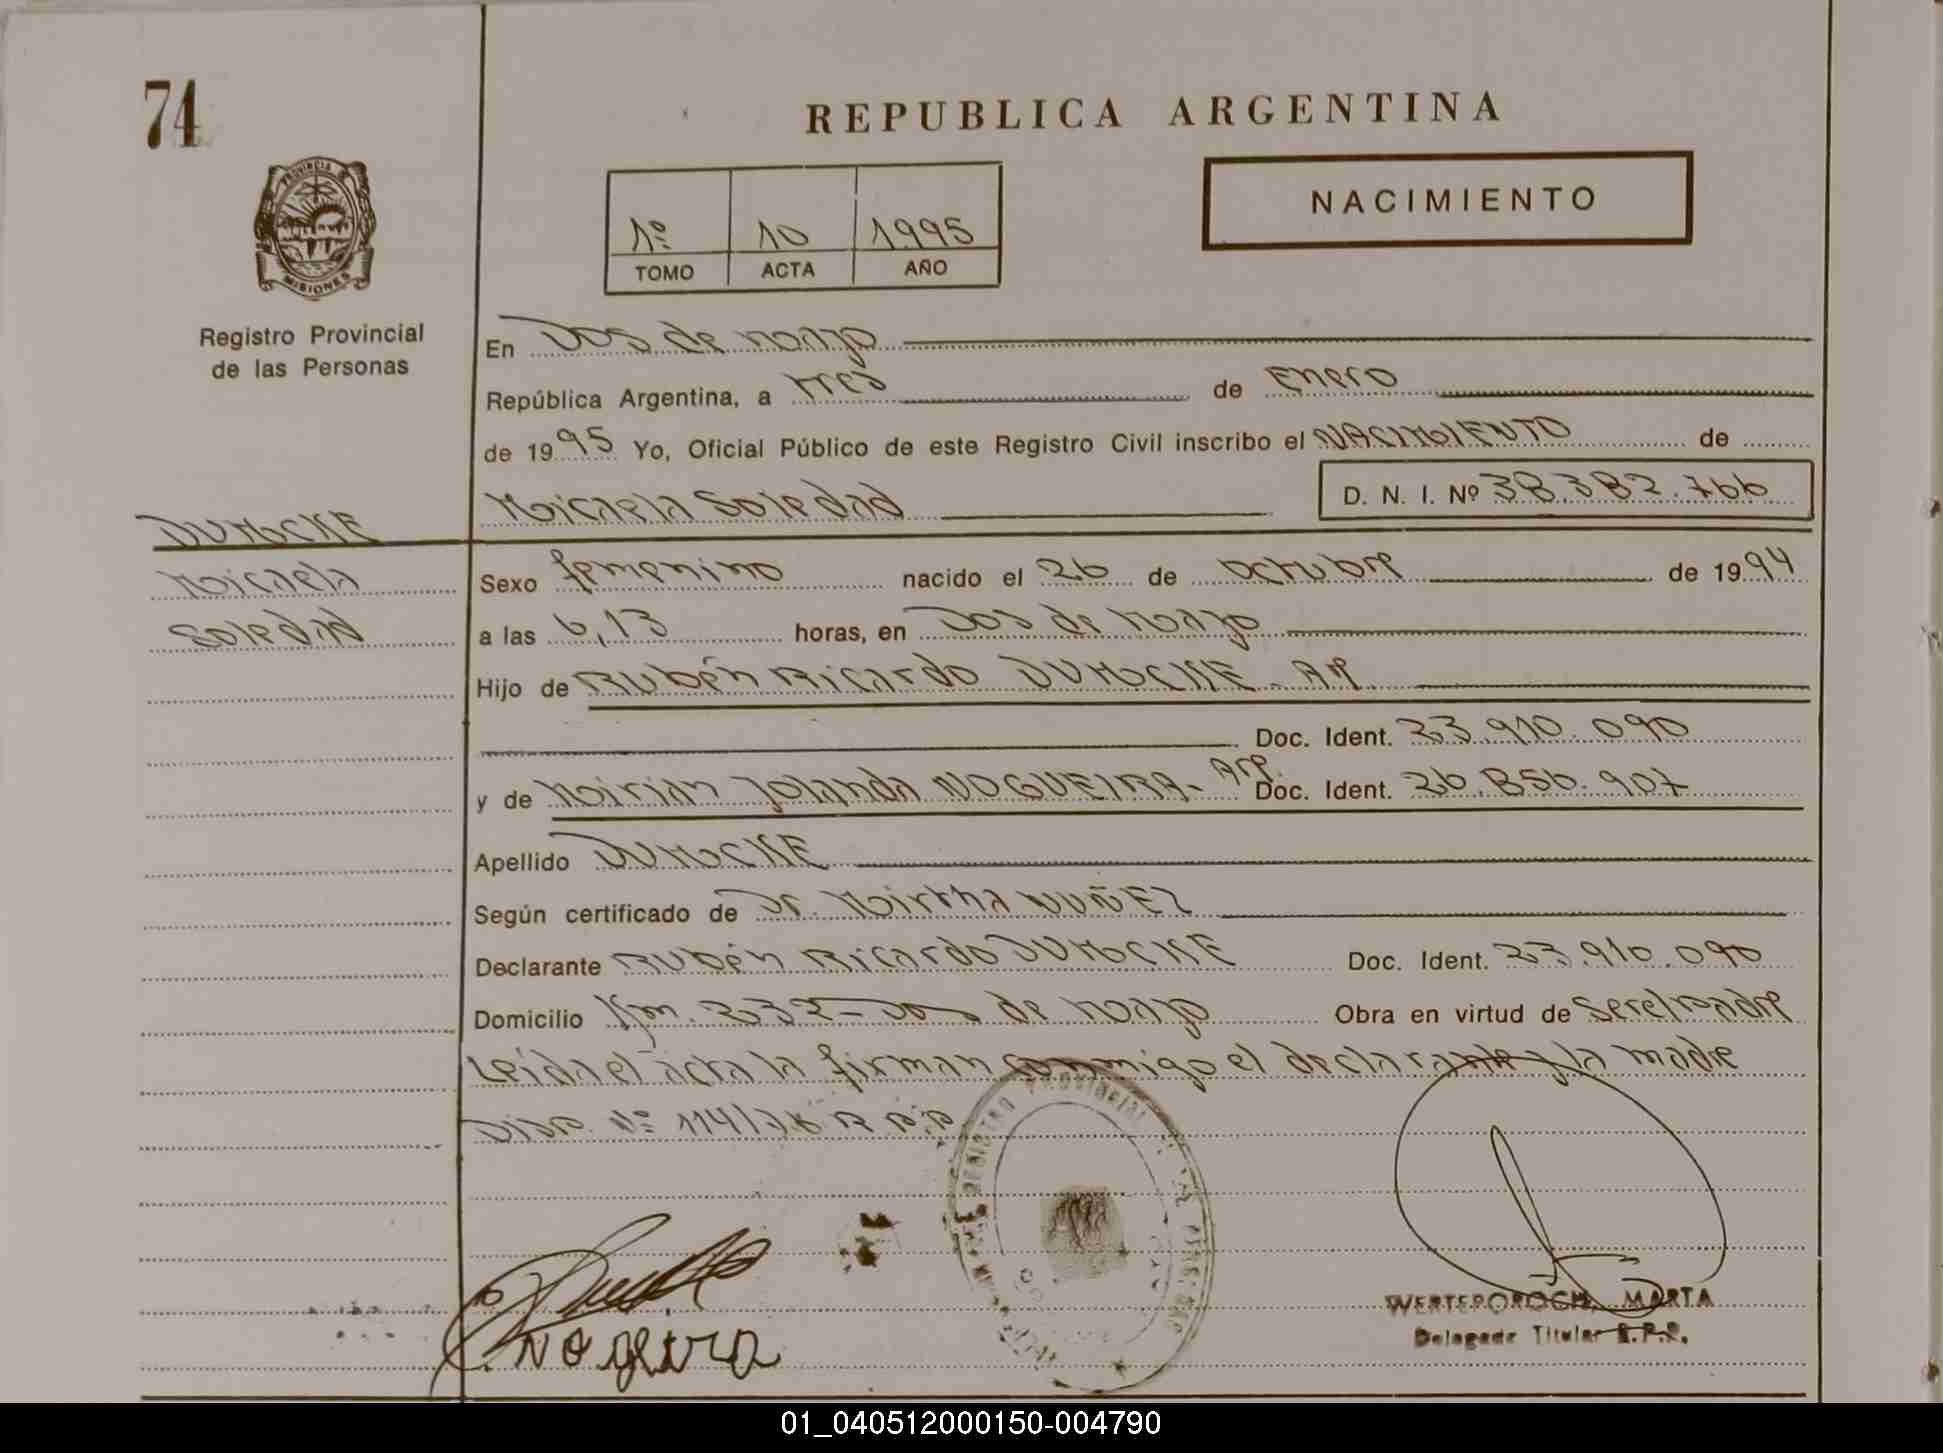 74
REPUBLICA ARGENTINA
PROVINCIA DE
MISIONES
NACIMIENTO
1º 10 1995
TOMO ACTA AÑO
Registro Provincial
de las Personas
En Dos de Mayo
República Argentina, a tres de Enero
de 1995 Yo, Oficial Público de este Registro Civil inscribo el NACIMIENTO de
Micaela Soledad D. N. I. Nº 38.382.766
DUMOCKE
Micaela
Soledad
Sexo femenino nacido el 26 de octubre de 1994
a las 6,13 horas, en Dos de Mayo
Hijo de Rubén Ricardo DUMOCKE
Doc. Ident. 23.910.090
y de Mirian Yolanda NOGUEIRA - Arg. Doc. Ident. 26.856.907
Apellido DUMOCKE
Según certificado de Dr. Mirtha NUÑEZ
Declarante Rubén Ricardo DUMOCKE Doc. Ident. 23.910.090
Domicilio Km. 232 - Dos de Mayo Obra en virtud de ser el padre
Leída el acta la firman conmigo el declarante y la madre
Disp. Nº 114/
REGISTRO PROVINCIAL
Nogeira
WERTEPOROCH, MARTA
Delegada Titular R.P.P.
01_040512000150-004790